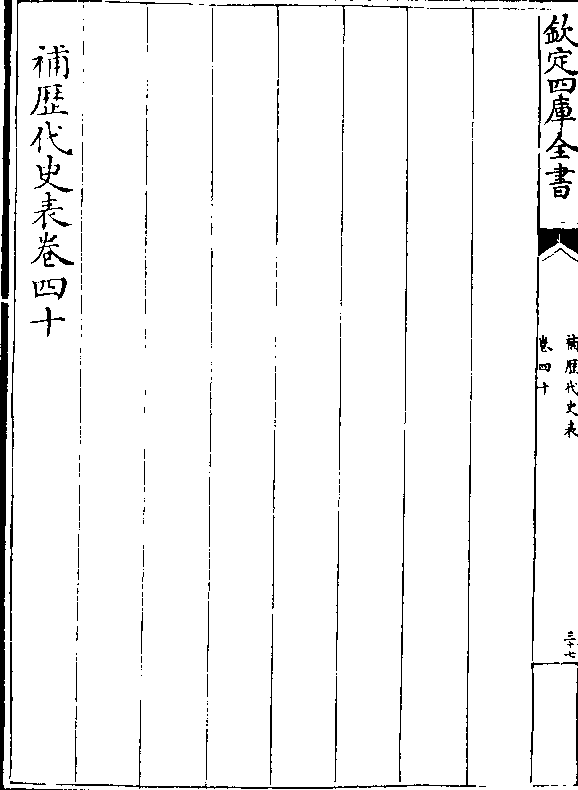 欽定四庫全書
補歴代史表
卷四十
三十七
補歴代史表卷四十